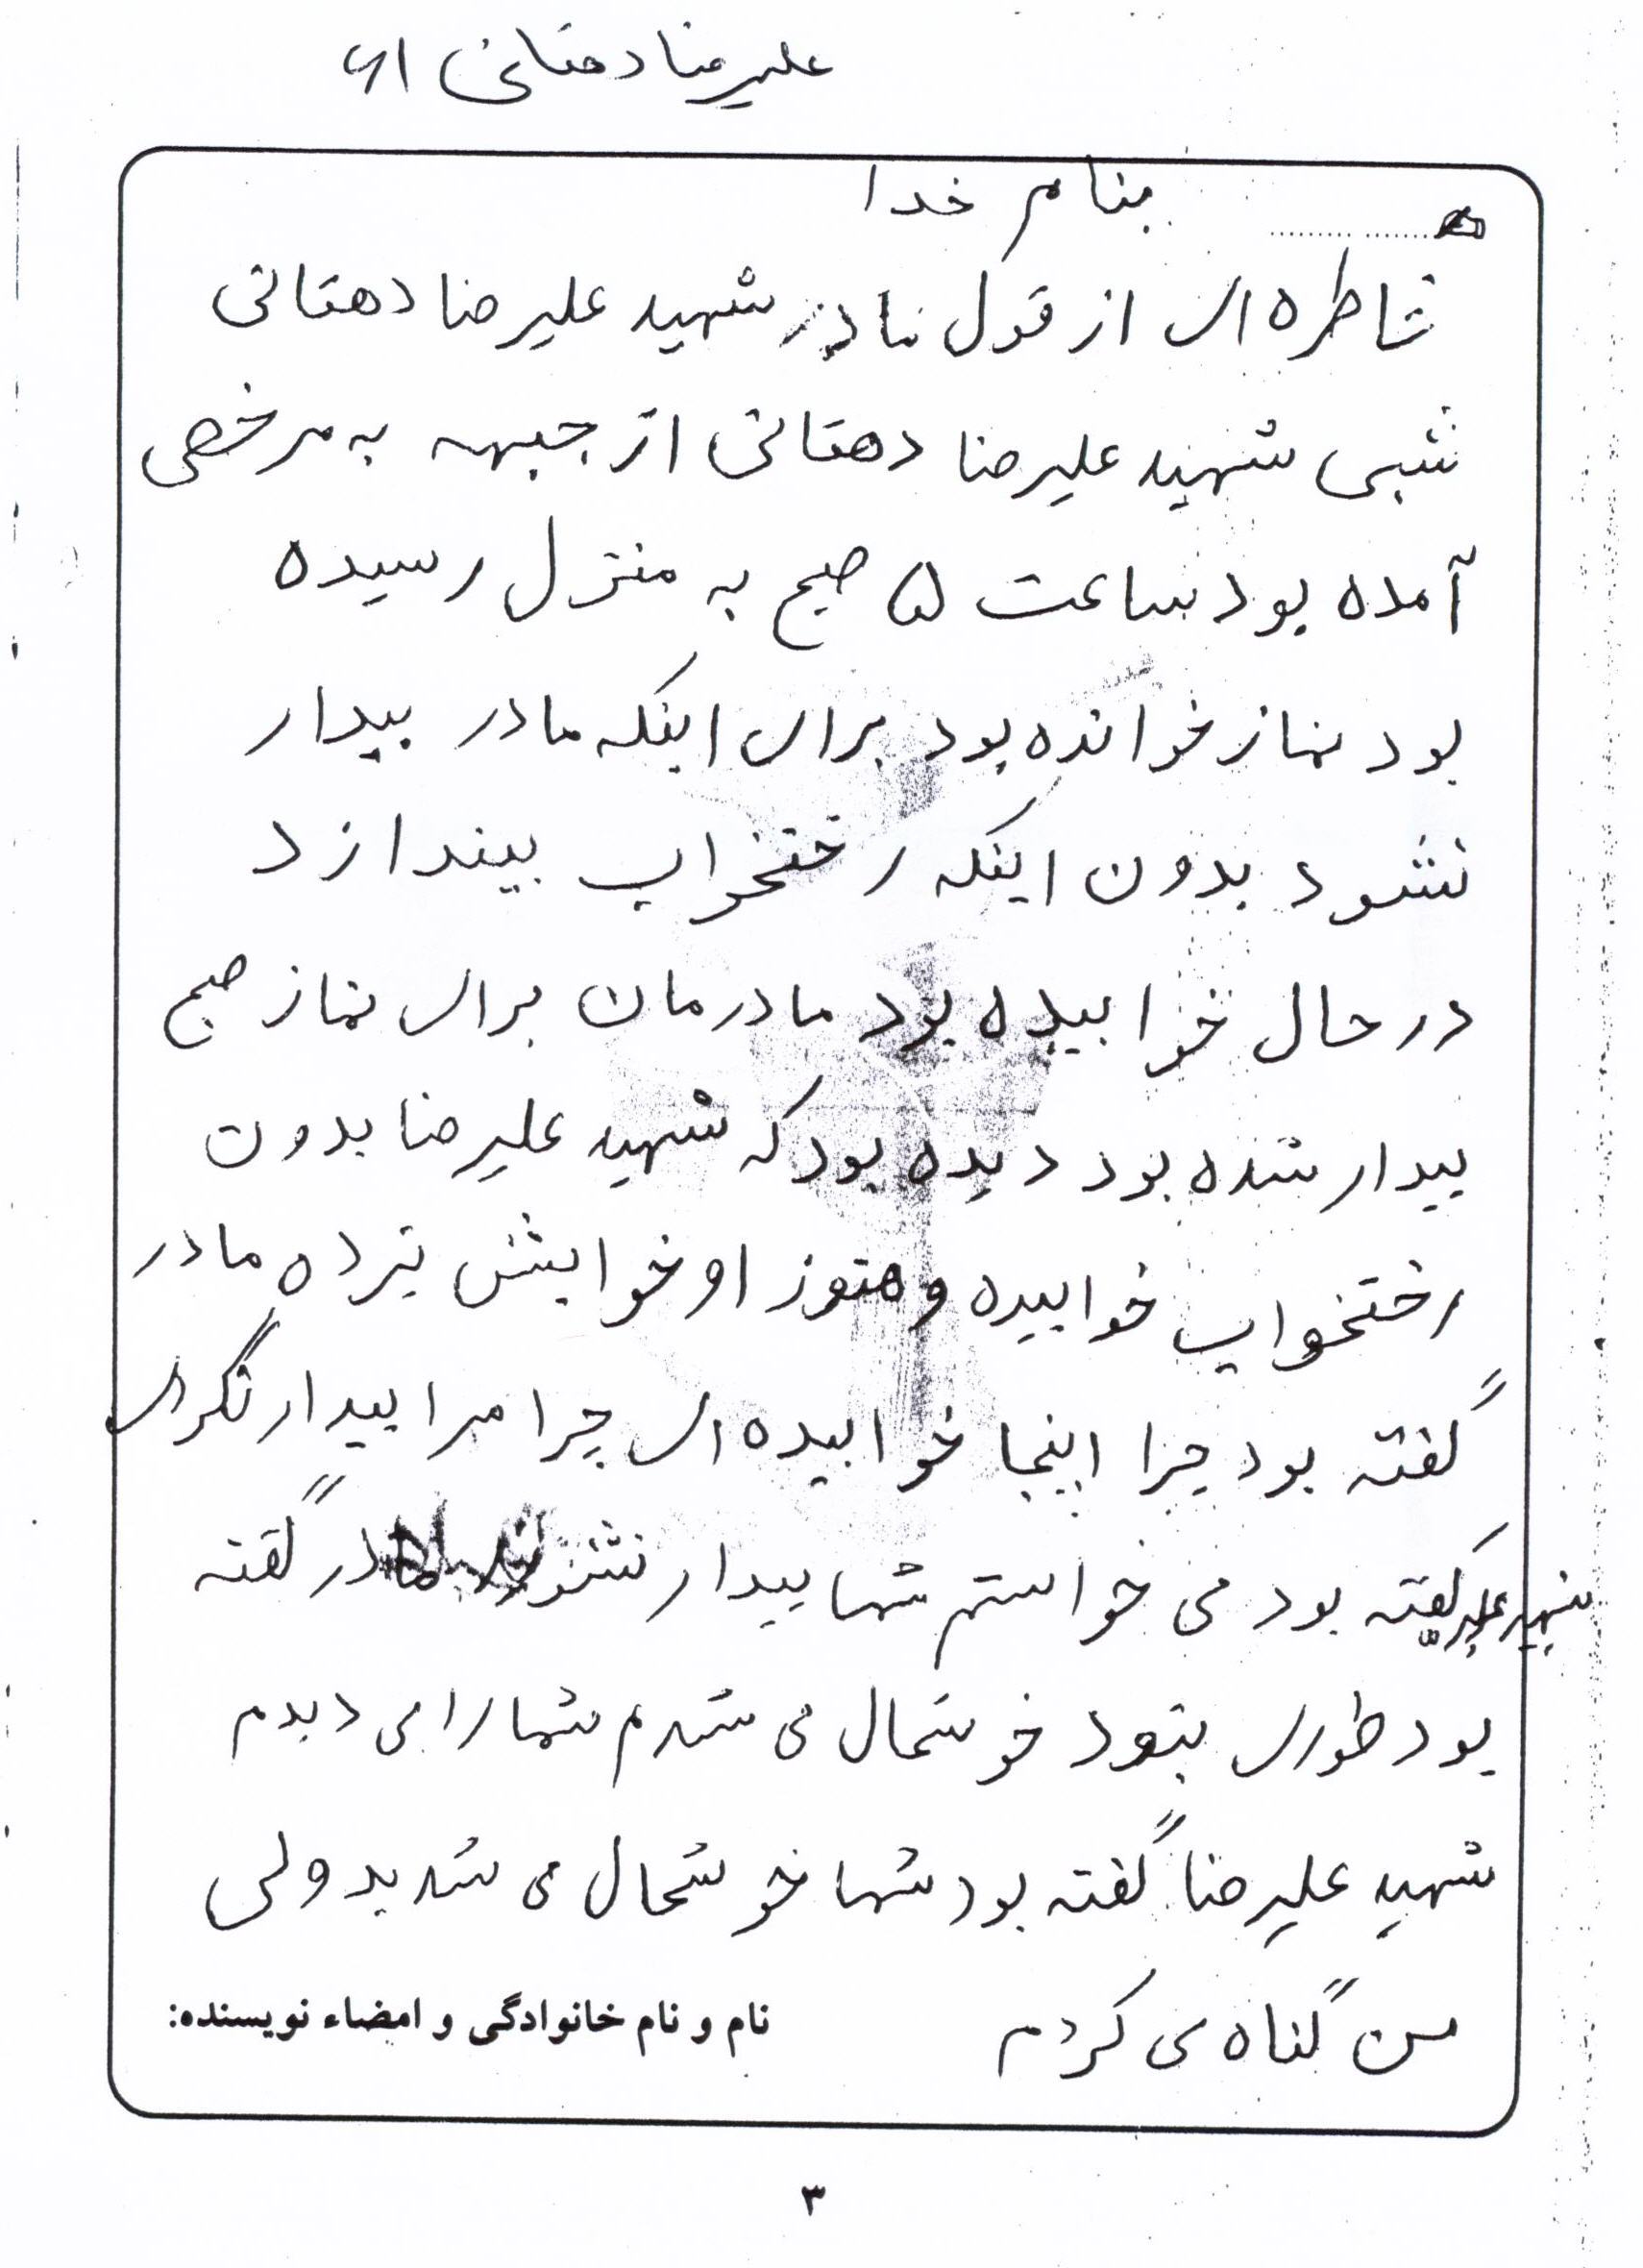 علیرضا دهقانی ۶۱
بنام خدا
خاطره ای از قول مادر شهید علیرضا دهقانی
شبی شهید علیرضا دهقانی از جبهه به مرخصی
آمده بود ساعت ۵ صبح به منزل رسیده
بود نماز خوانده بود برای اینکه مادر بیدار
نشود بدون اینکه رختخواب بیندازد
در حال خوابیده بود مادرمان برای نماز صبح
بیدار شده بود دیده بود که شهید علیرضا بدون
رختخواب خوابیده و هنوز او خوابش نبرده مادر
گفته بود چرا اینجا خوابیده ای چرا مرا بیدار نکردی
شهید علیرضا گفته بود می خواستم شما بیدار نشوید مادر گفته
بود طوری نبود خوشحال می شدم شما را می دیدم
شهید علیرضا گفته بود شما خوشحال می شدید ولی
من گناه می کردم
نام و نام خانوادگی و امضاء نویسنده:
۳